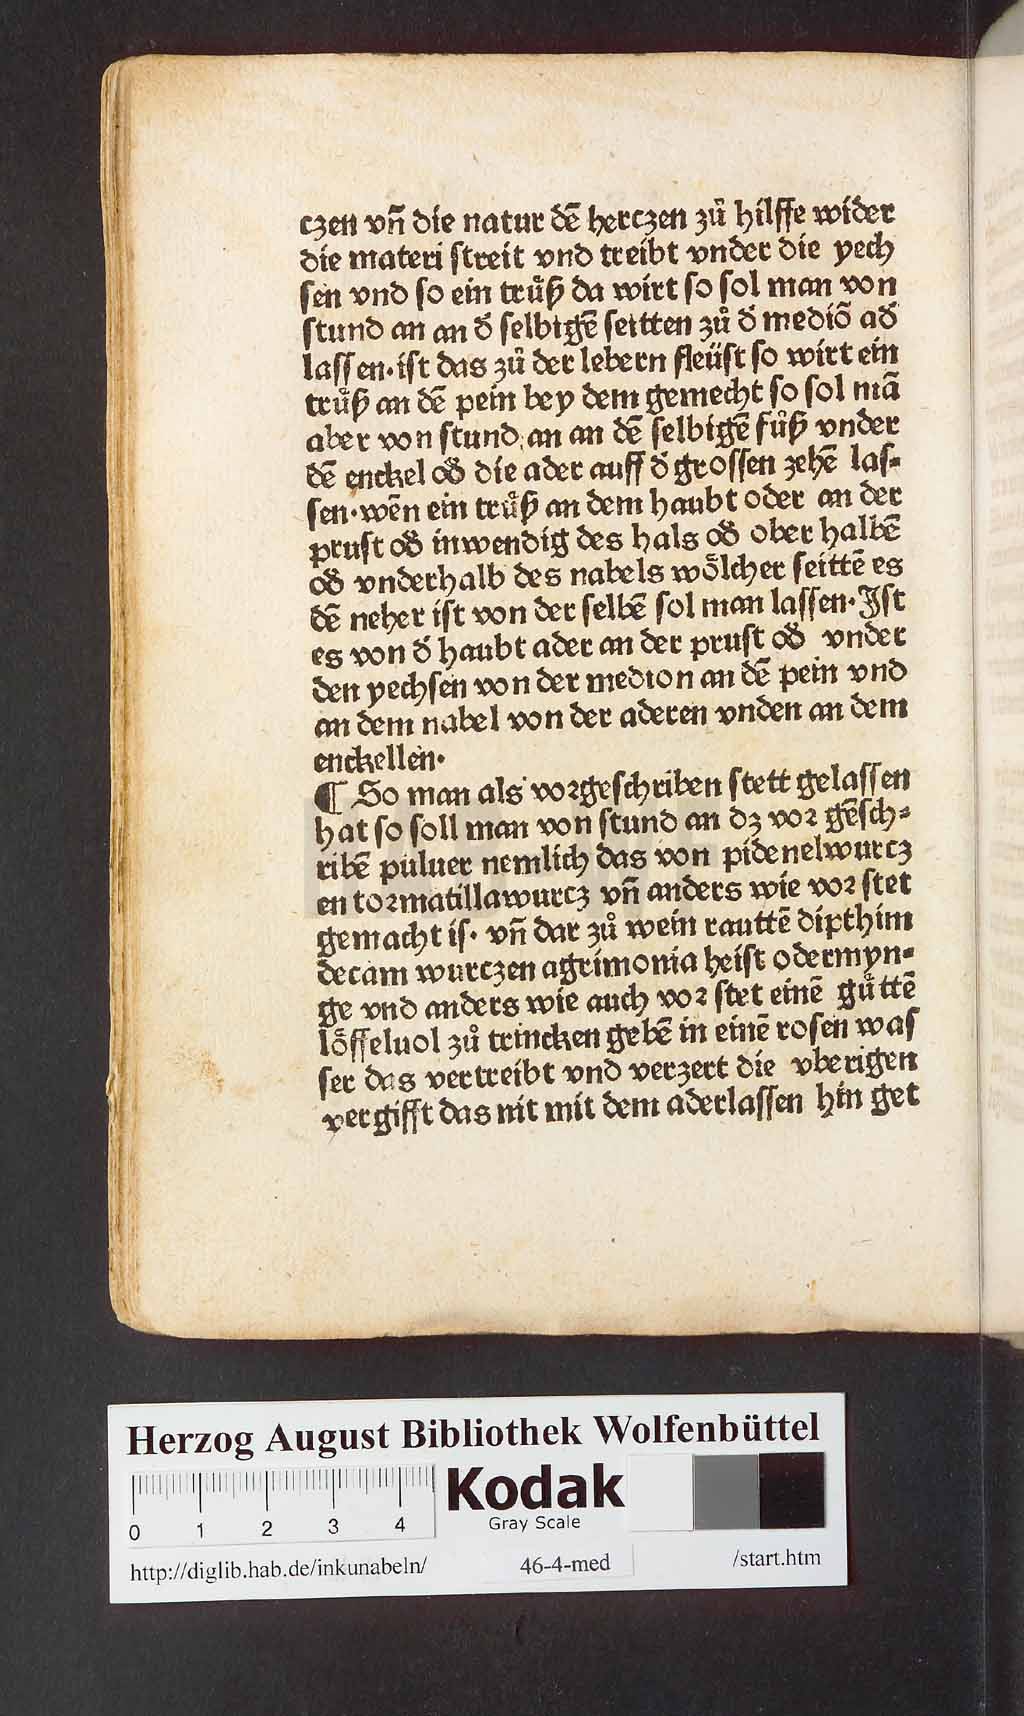 czen vñ die natur dē herczen zů hilffe wider
die materi streit vnd treibt vnder die yech
sen vnd so ein trůß da wirt so sol man von
stund an an d̕ selbigē seitten zů d̕ mediō ad̕
lassen·ist das zů der lebern fleüst so wirt ein
trůß an dē pein bey dem gemecht so sol mā
aber von stund an an dē selbigē fůß vnder
dē enckel od̕ die ader auff d̕ grossen zehē las⸗
sen·wēn ein trůß an dem haubt oder an der
prust od̕ inwendig des hals od̕ ober halbē
od̕ vnderhalb des nabels woͤlcher seittē es
dē neher ist von der selbē sol man lassen·Ist
es von d̕ haubt ader an der prust od̕ vnder
den yechsen von der medion an dē pein vnd
an dem nabel von der aderen vnden an dem
enckellen·
¶ So man als vorgeschriben stett gelassen
hat so soll man von stund an dz vor gēsch⸗
ribē puluer nemlich das von pidenelwurcz
en tormatillawurcz vñ anders wie vor stet
gemacht is· vñ dar zů wein rauttē dipthim
decam wurczen agrimonia heist odermyn⸗
ge vnd anders wie auch vor stet einē gůttē
loͤffeluol zů trincken gebē in einē rosen was
ser das vertreibt vnd verzert die vberigen
vergifft das nit mit dem aderlassen hin get
Herzog August Bibliothek Wolfenbüttel
0 1 2 3 4
Kodak
Gray Scale
http://diglib.hab.de/inkunabeln/ 46-4-med /start.htm